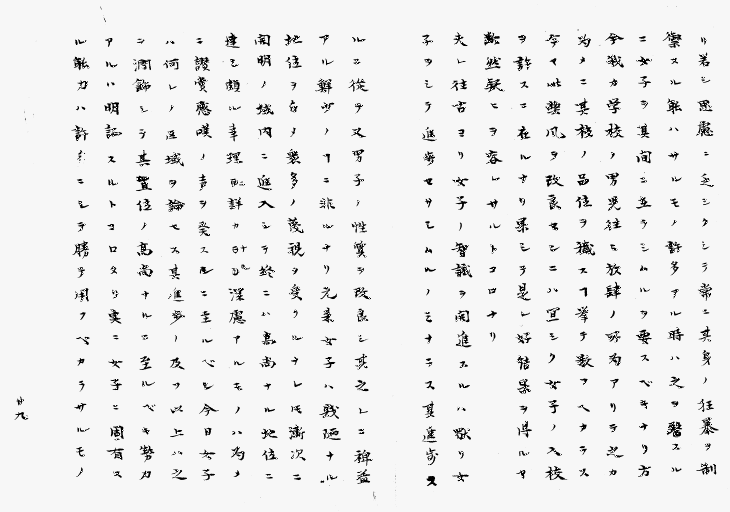 リ若シ思慮ニ乏シクシテ常ニ其身ノ狂暴ヲ制
禦スル能ハサルモノ許多アル時ハ之ヲ醫スル
ニ女子ヲ其間ニ立ラシムルヲ要スベキナリ方
今我カ学校ノ男児往々放肆ノ所為アリ之カ
為メニ其校ノ品位ヲ穢スヿ挙テ数フヘカラス
今ヤ此弊風ヲ改良セシニハ宜シク女子ノ入校
ヲ許スニ在ルナリ果シテ是レ好結果ヲ得ルヤ
断然疑ヒヲ容レサルトコロナリ
夫レ往古ヨリ女子ノ智識ヲ開進スルハ獣リ女
子ヲシテ進歩セサシムルノミナラス其進歩ス
ルニ従テ又男子ノ性質ヲ改良シ其之レニ裨益
アル鮮少ノヿニ非ルナリ元来女子ハ賤陋ナル
地位ヲ占メ衆多ノ蔑視ヲ受クルナレ𪜈漸次ニ
開明ノ域内ニ進入シテ終ニハ高尚ナル地位ニ
達シ頗ル事理ニ詳カ深慮アルモノハ為メ
ニ讃賞感嘆ノ声ヲ発スルニ至ルベシ今日女子
ハ何レノ区域ヲ論セス其進歩ノ及フ以上ハ之
ニ潤飾シテ其置位ノ高尚ナルニ至ルベキ勢力
アルハ明論スルトコロタリ実ニ女子ニ固有ス
ル能力ハ許多ニシテ勝テ用フベカラサルモノ
廿九